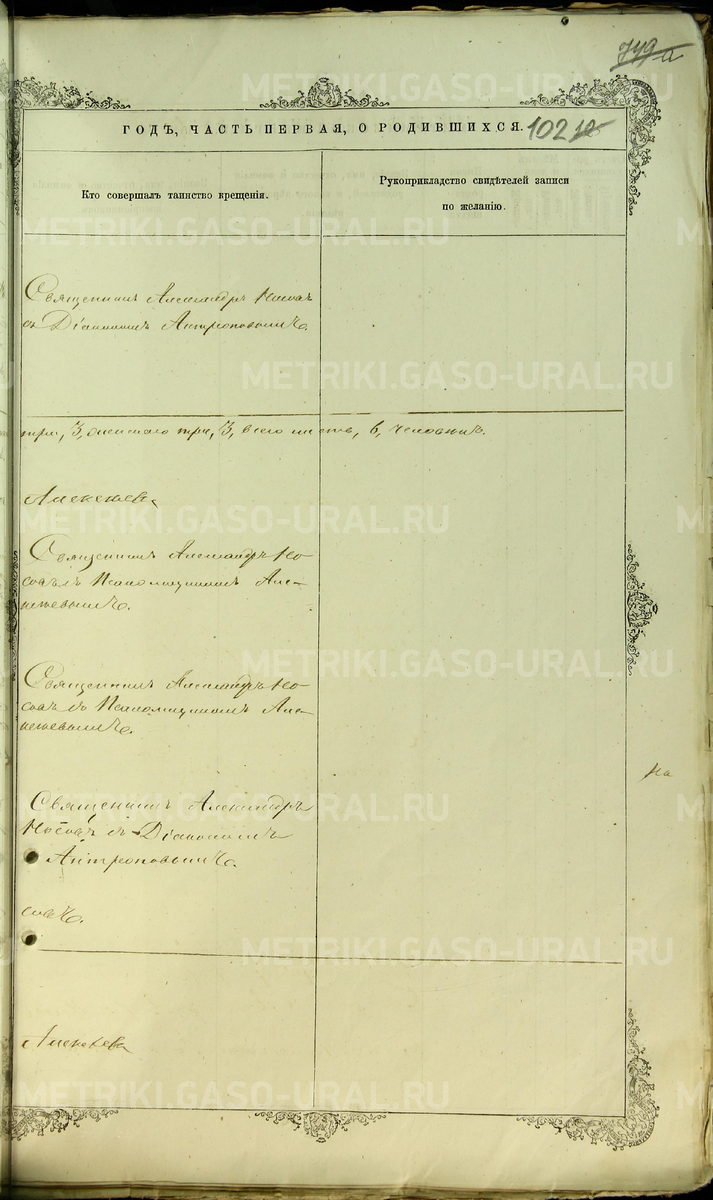 749 а
ГОДЪ, ЧАСТЬ ПЕРВАЯ, О РОДИВШИХСЯ. 102
Кто совершалъ таинство крещенія.
Рукоприкладство свидѣтелей записи
по желанію.
Священникъ Александръ Носовъ
съ Діакономъ Антроповымъ.
три, 3, женскаго три, 3, всего шесть, 6, человѣкъ.
Алексѣевъ
Священникъ Александръ Но-
совъ съ Псаломщикомъ Але-
ксѣевымъ.
Священникъ Александръ Но-
совъ съ Псаломщикомъ Але-
ксѣевымъ.
Священникъ Александръ
Носовъ съ Діакономъ
Антроповымъ.
совъ.
Алексѣевъ
На
METRIKI.GASO-URAL.RU